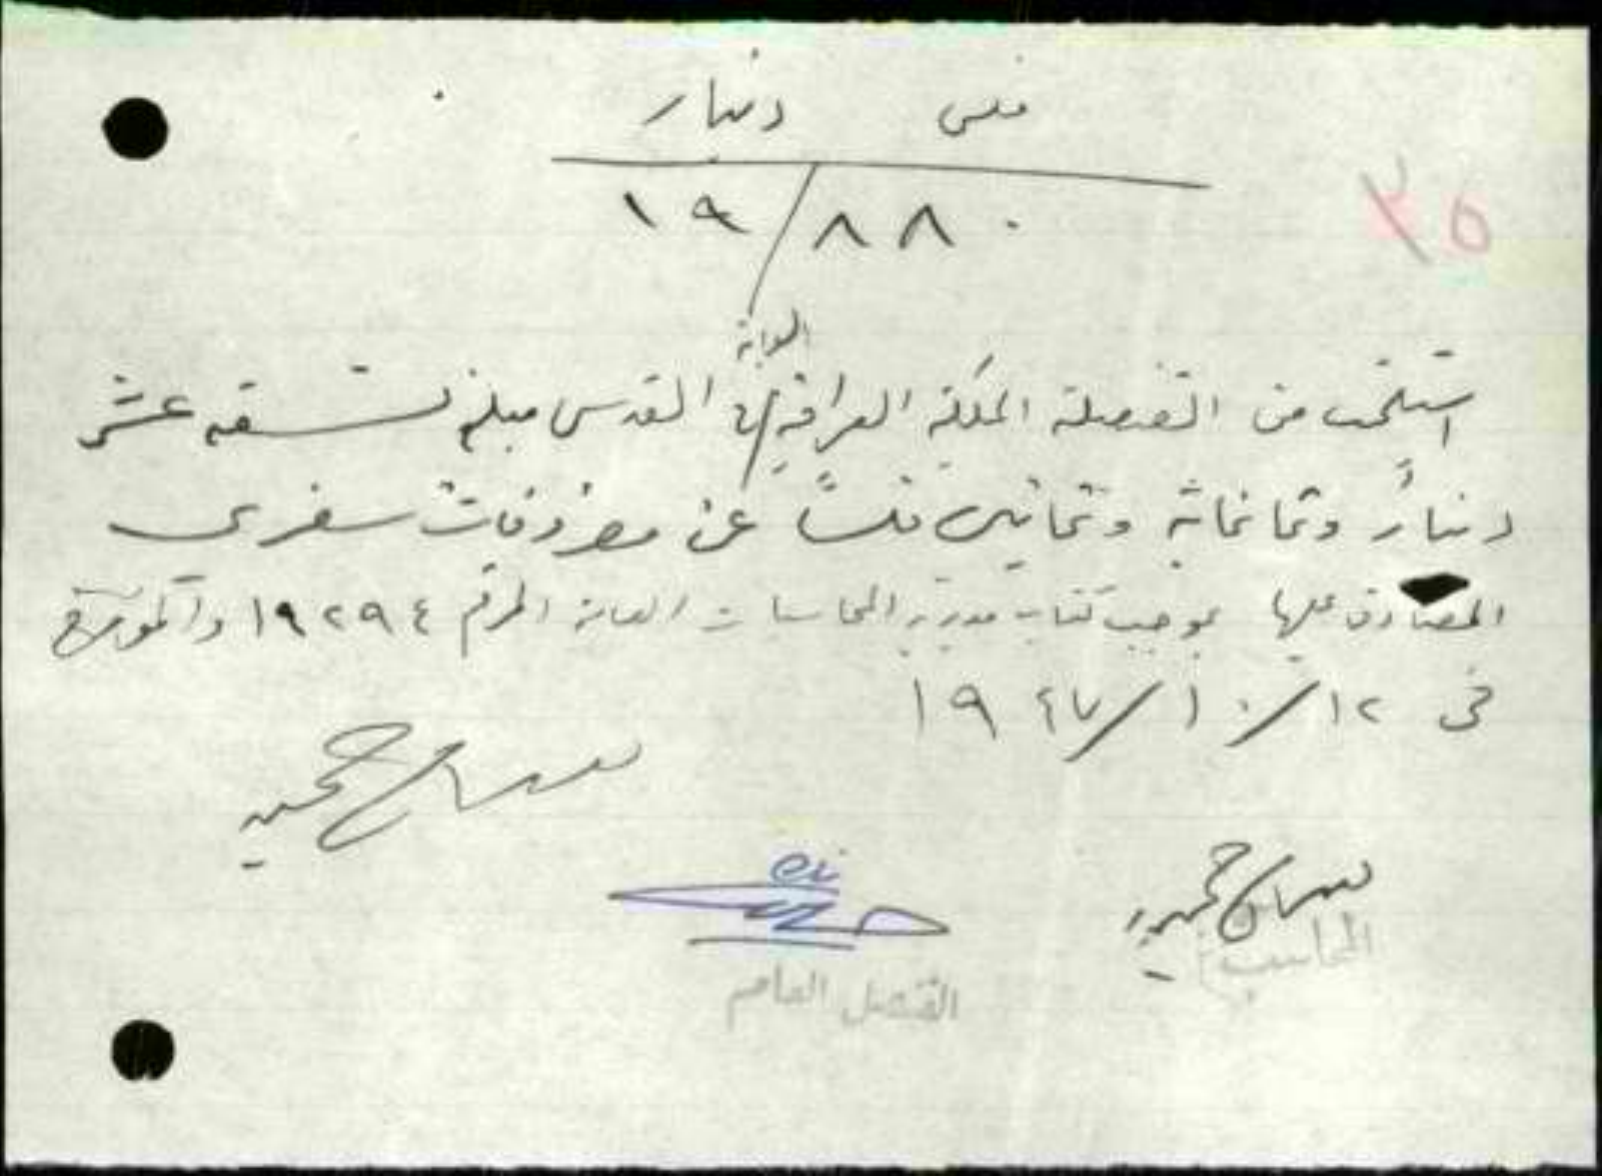 فلس دينار
١٩/٨٨٠
٣٥
العامة
استلمت من القنصلية الملكية العراقية في القدس مبلغ تسعة عشر
ديناراً وثمانمائة وثمانين فلساً عن مصروفات سفري
المصادق عليها بموجب كتاب مديرية المحاسبات العامة المرقم ١٩٢٩٤ والمؤرخ
في ١٢/١٠/١٩٤٧
المحاسب
القنصل العام